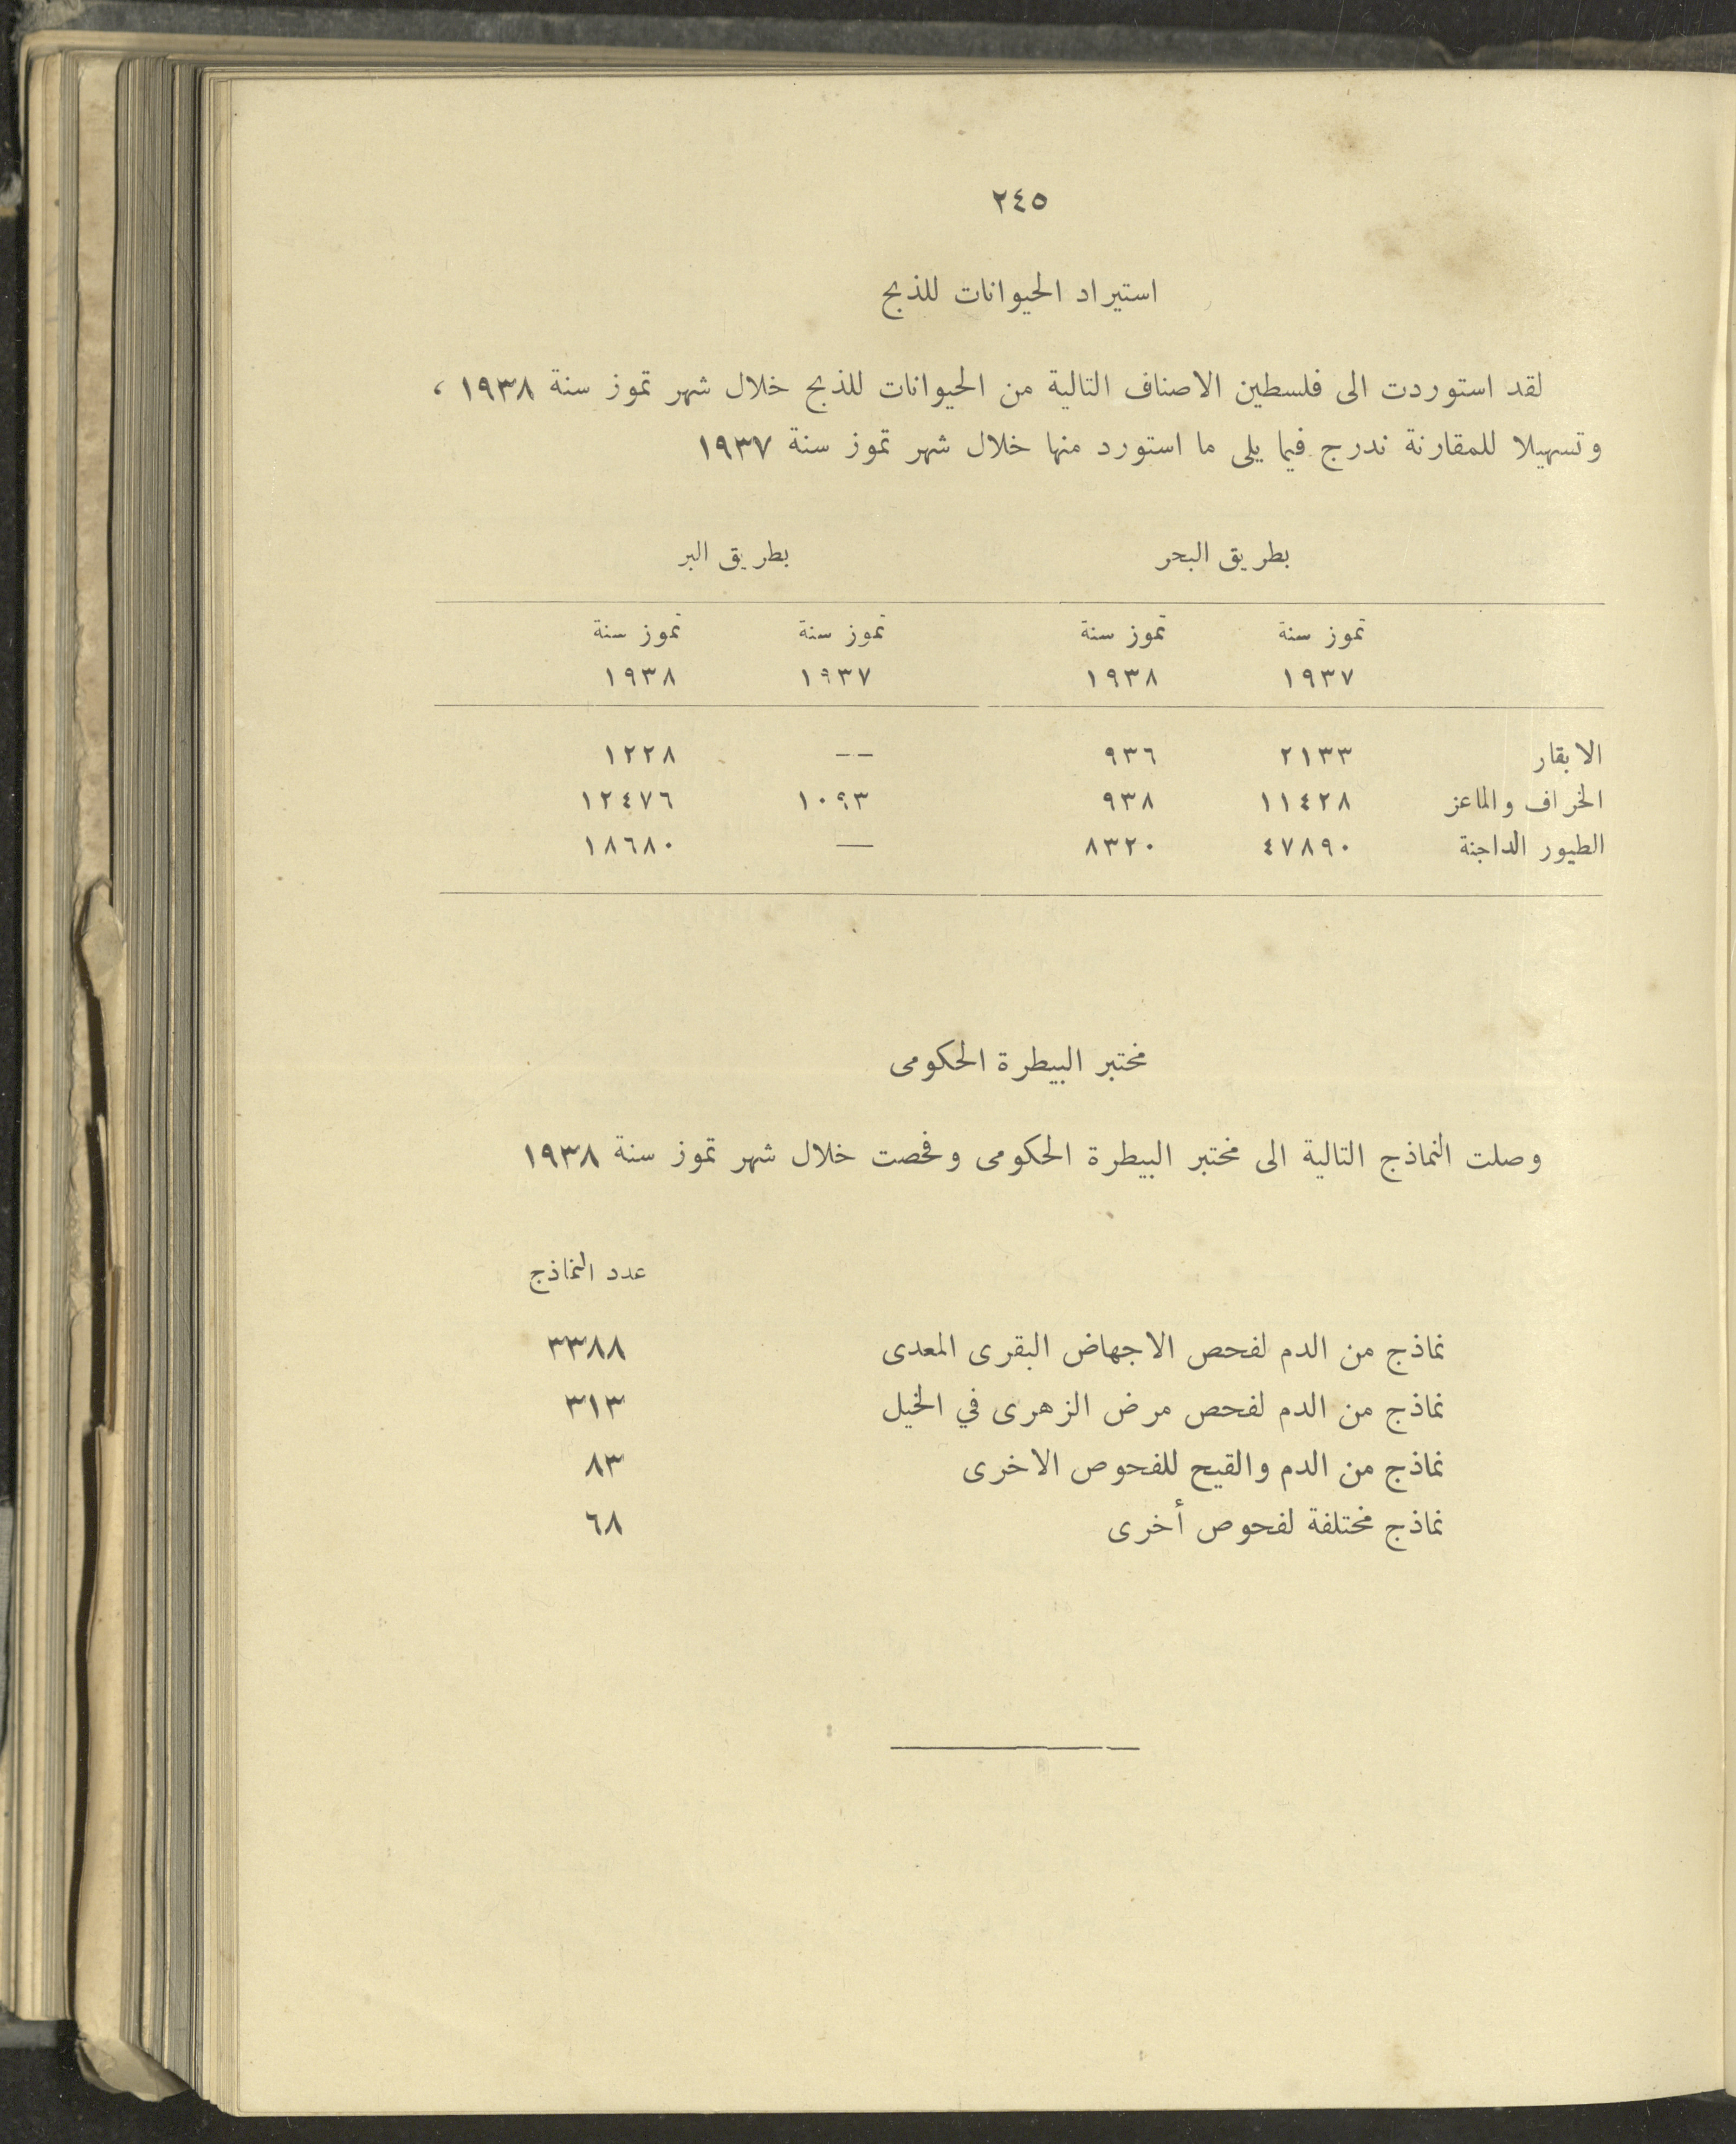 ٢٤٥
استيراد الحيوانات للذبح
لقد استوردت الى فلسطين الاصناف التالية من الحيوانات للذبح خلال شهر تموز سنة ١٩٣٨ ،
وتسهيلا للمقارنة ندرج فيما يلى ما استورد منها خلال شهر تموز سنة ١٩٣٧
بطريق البحر بطريق البر
تموز سنة تموز سنة تموز سنة تموز سنة
١٩٣٧ ١٩٣٨ ١٩٣٧ ١٩٣٨
الابقار ٢١٣٣ ٩٣٦ -- ١٢٢٨
الخراف والماعز ١١٤٢٨ ٩٣٨ ١٠٩٣ ١٢٤٧٦
الطيور الداجنة ٤٧٨٩٠ ٨٣٢٠ — ١٨٦٨٠
مختبر البيطرة الحكومى
وصلت النماذج التالية الى مختبر البيطرة الحكومى وفحصت خلال شهر تموز سنة ١٩٣٨
عدد النماذج
نماذج من الدم لفحص الاجهاض البقرى المعدى ٣٣٨٨
نماذج من الدم لفحص مرض الزهرى في الخيل ٣١٣
نماذج من الدم والقيح للفحوص الاخرى ٨٣
نماذج مختلفة لفحوص أخرى ٦٨